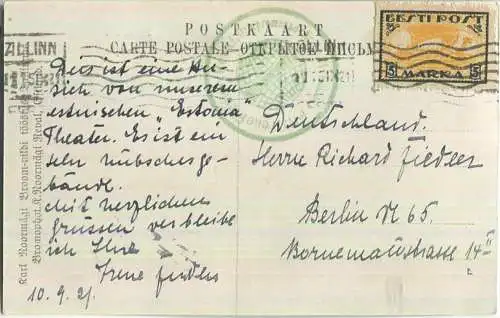 POSTKAART
CARTE POSTALE ОТКРЫТОЕ ПИСЬМО
TALLINN
EESTI POST
5 MARKA 5
Dies ist eine An-
sich von unserem
estnischen "Estonia"
Theater. Es ist ein
sehr hübsches ge-
bände.
Mit herzlichen
grüssen verbleibe
ich Ihre
Irene
10.9.21.
Deutschland.
Herrn Richard Fiedler
Berlin N 65.
Bornemannstrasse 14 II
Karl Noormägi Broom-
Bromophot. K. Noormägi Reval,